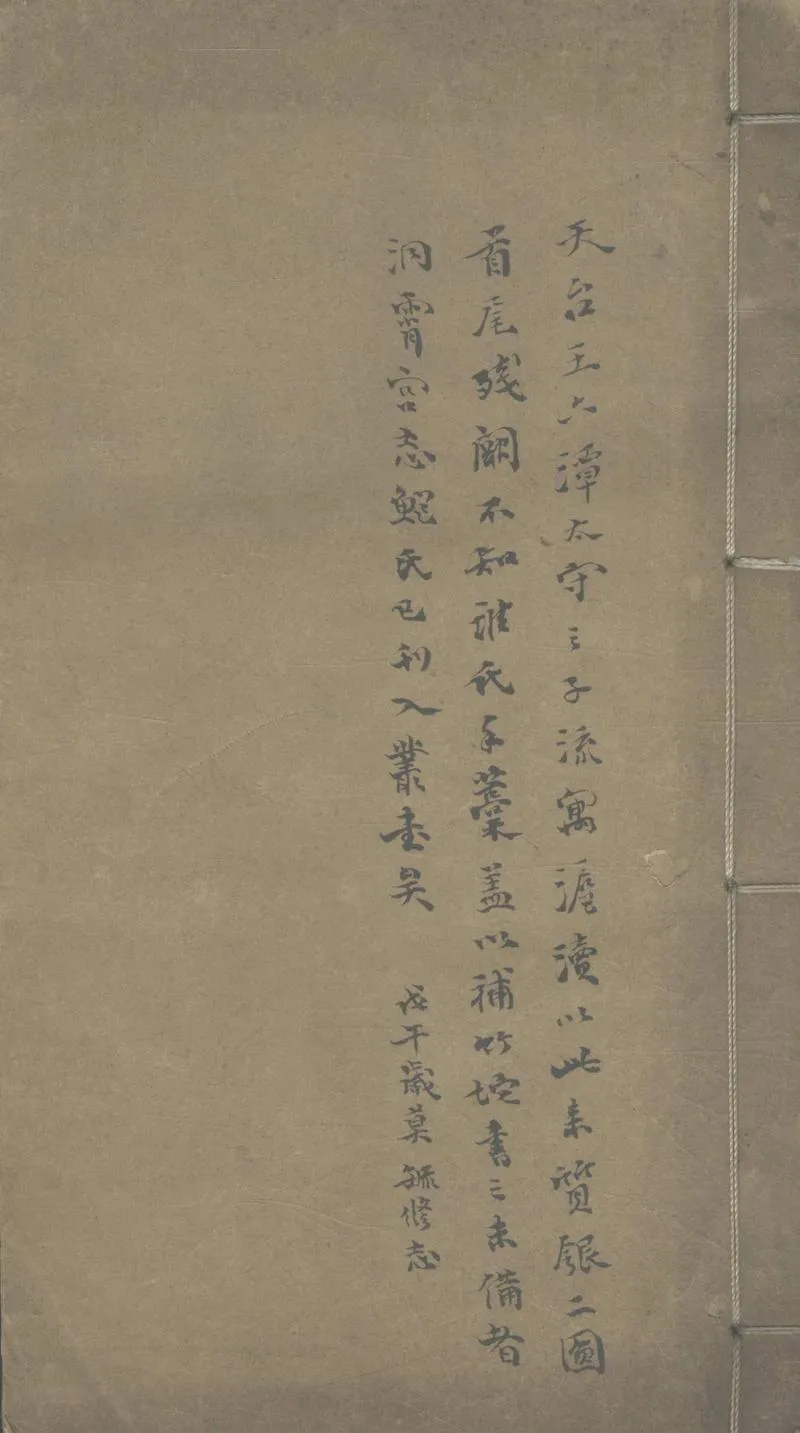 天台王六潭太守之子流寓滬瀆以此来質銀二圓
首尾殘闕不知誰氏手藁蓋以補竹垞書之未備者
洞霄宮志鮑氏已刊入叢書矣 戊午歲莫毓修志